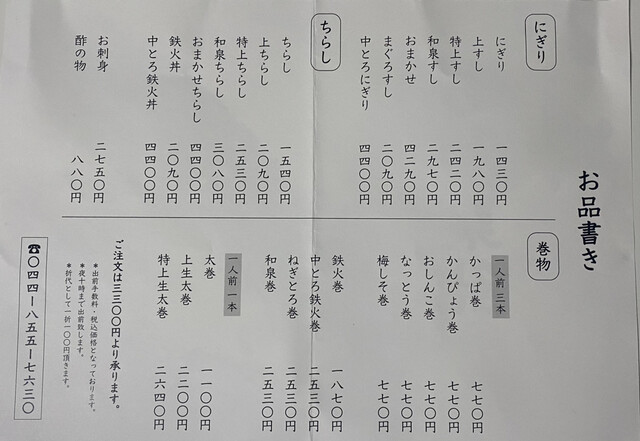 お品書き
にぎり
にぎり 一四三〇円
上すし 一九八〇円
特上すし 二四二〇円
和泉すし 二九七〇円
おまかせ 四二九〇円
まぐろすし 二〇九〇円
中とろにぎり 四四〇〇円
ちらし
ちらし 一五四〇円
上ちらし 二〇九〇円
特上ちらし 二五三〇円
和泉ちらし 三〇八〇円
おまかせちらし 四四〇〇円
鉄火丼 二〇九〇円
中とろ鉄火丼 四四〇〇円
お刺身 二七五〇円
酢の物 八八〇円
巻物
一人前 三本
かっぱ巻 七七〇円
かんぴょう巻 七七〇円
おしんこ巻 七七〇円
なっとう巻 七七〇円
梅しそ巻 七七〇円
鉄火巻 一八七〇円
中とろ鉄火巻 二五三〇円
ねぎとろ巻 二五三〇円
和泉巻 二五三〇円
一人前 一本
太巻 一一〇〇円
上生太巻 二二〇〇円
特上生太巻 二六四〇円
ご注文は三三〇〇円より承ります。
＊出前手数料・税込価格となっております。
＊夜十時まで出前致します。
＊折代として一折一〇〇円頂きます。
☎〇四四ー八五五ー七六三〇